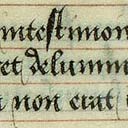 intestimon
ret delumin
non erat